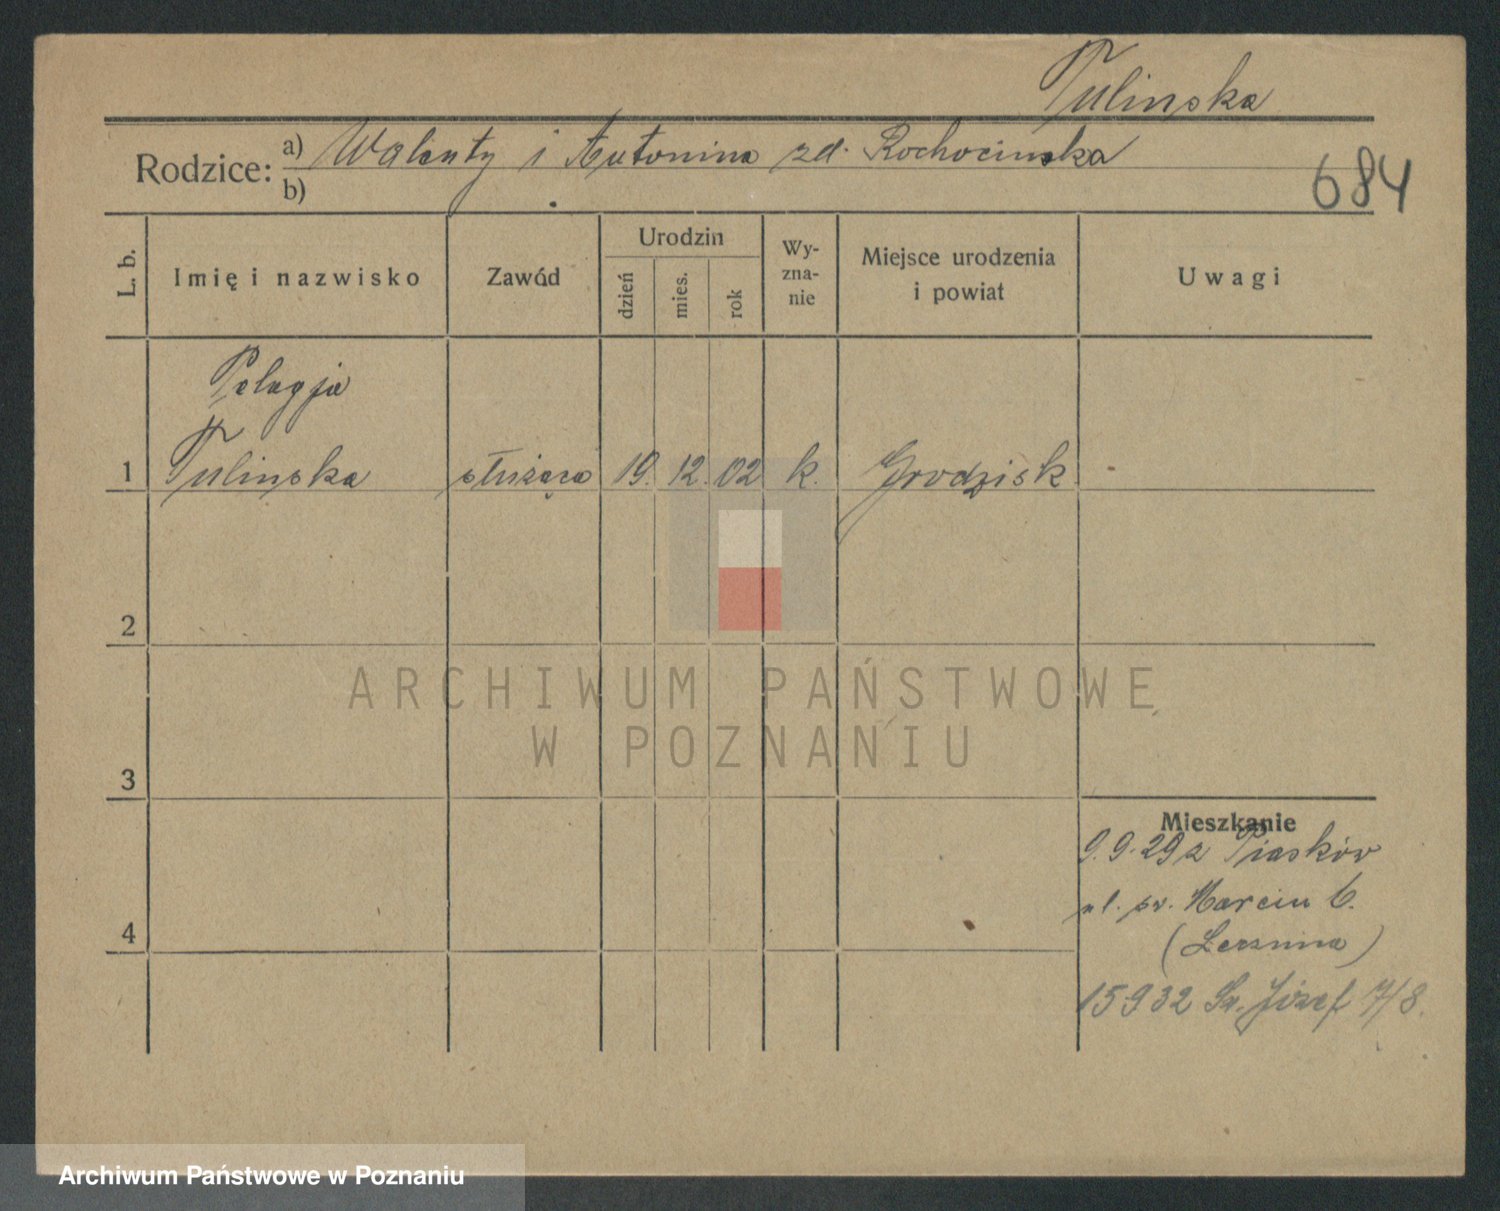 Tulinska
Rodzice: a) Walenty i Antonina zd. Rochocinska
b)
684
L. b.
Imię i nazwisko
Zawód
Urodzin
dzień
mies.
rok
Wy-
zna-
nie
Miejsce urodzenia
i powiat
Uwagi
Pelagja
1 Tulinska służąca 19. 12. 02 k. Grodzisk
2
ARCHIWUM PAŃSTWOWE
W POZNANIU
3
Mieszkanie
9.9.29 z Piasków
ul. św. Marcin 6.
4
15 9 32 Św. Józef 7/8.
Archiwum Państwowe w Poznaniu